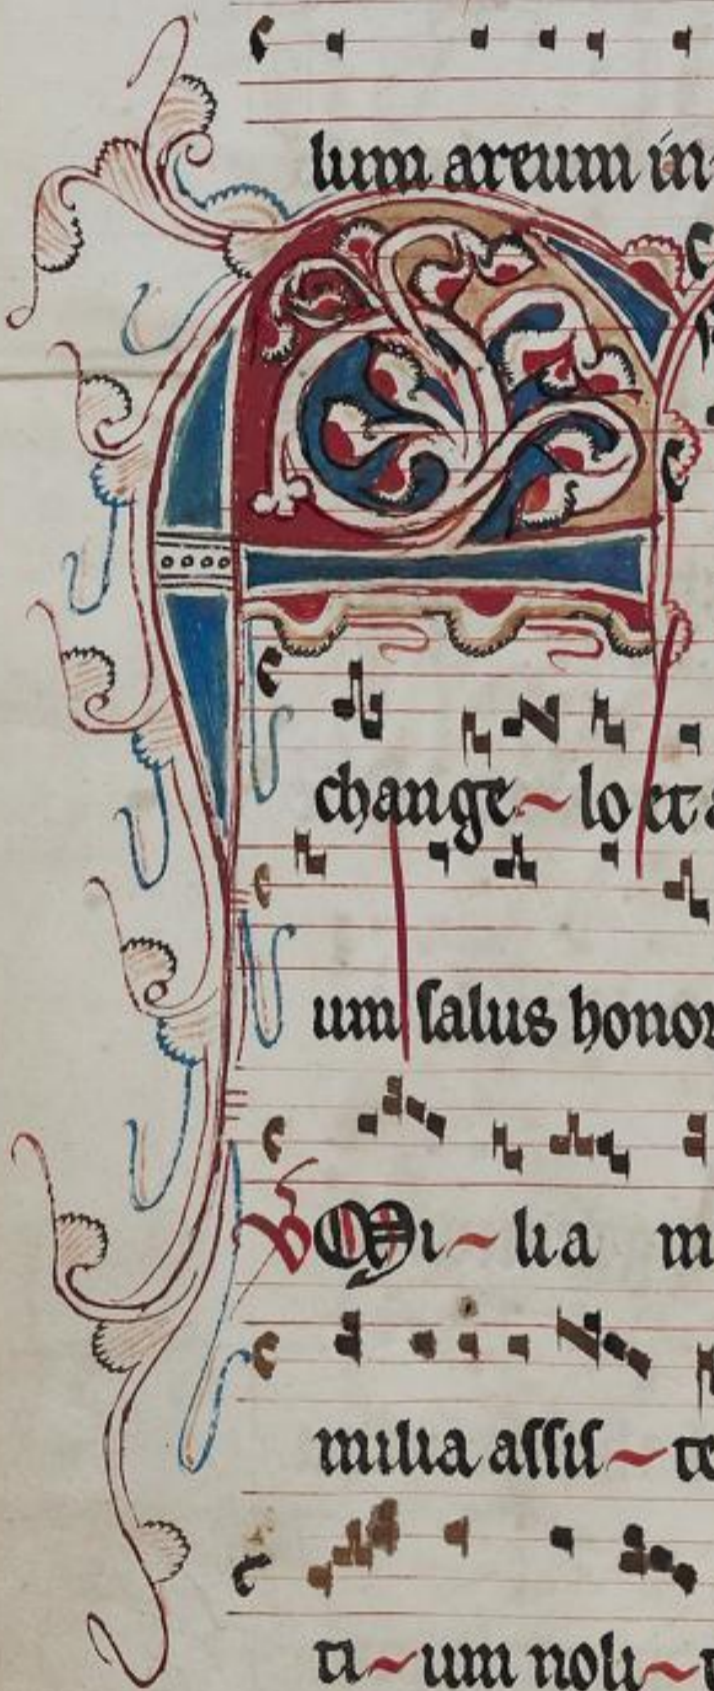 lum areum in-
change~lo et a
um salus honor
V Mi~lia m
milia assis~te
ti~um noli~t